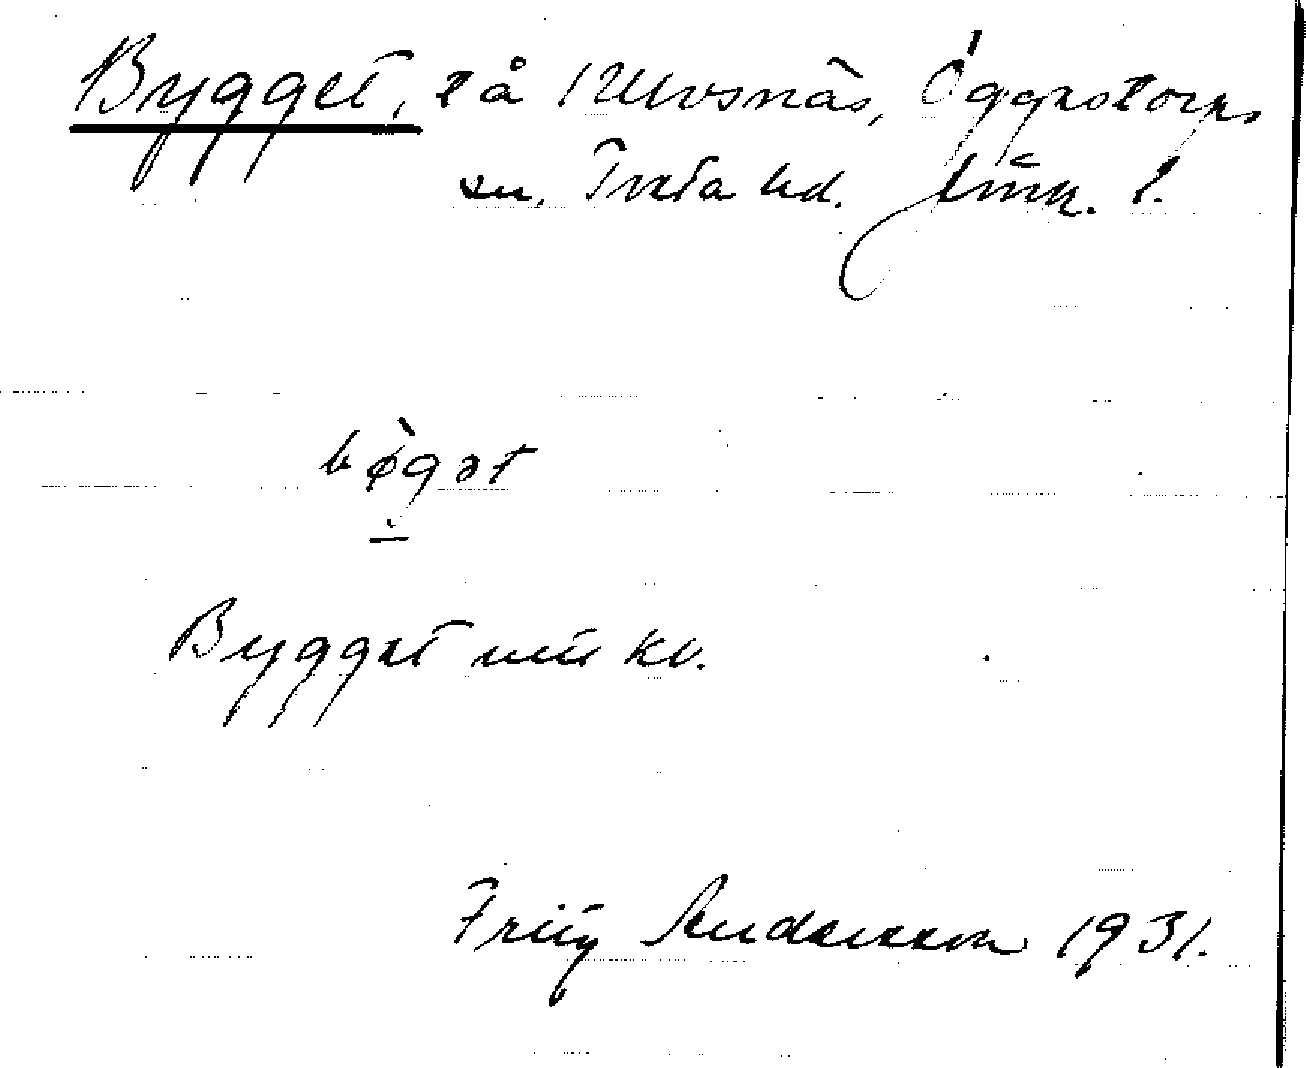 Bygget, lå i Ulvsnäs, Öggestorps
sn, Tveta hd. Jönk. l.
bø̀gət
Bygget mitt kv.
Fritz Andersson 1931.